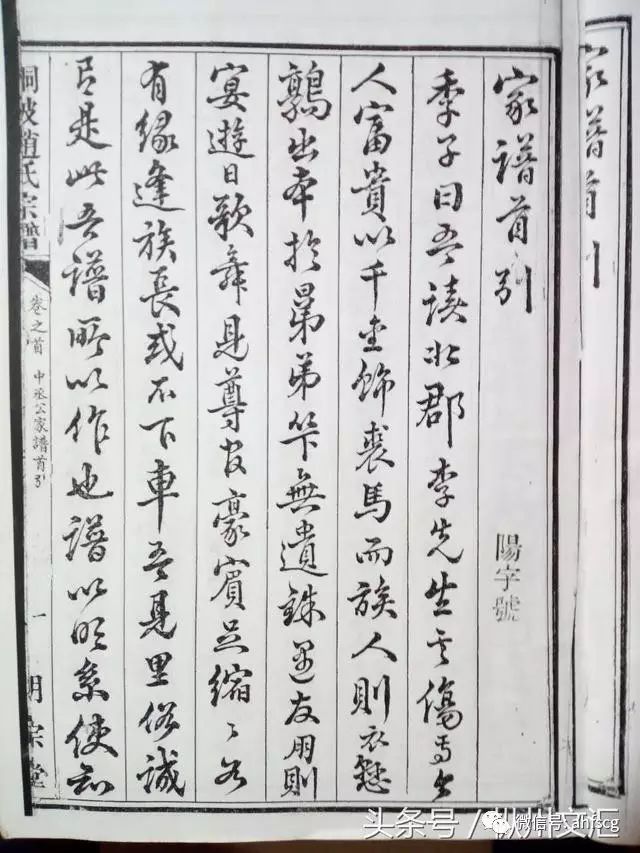 家譜首引
家譜首引
陽字號
季子曰吾讀北郡李先生言傷焉今
人富貴以千金飾裘馬而族人則衣懸
鶉出本於昆弟算無遺銖遇友朋則
宴遊日歌舞見尊官豪賓足縮縮如
有緣逢族長或不下車吾見里俗誠
有是此吾譜所以作也譜以明系使知
桐陂趙氏宗譜
卷之首 中丞公家譜首引
一
明宗堂
头条号 / 枞川文汇
微信号: ahfscg